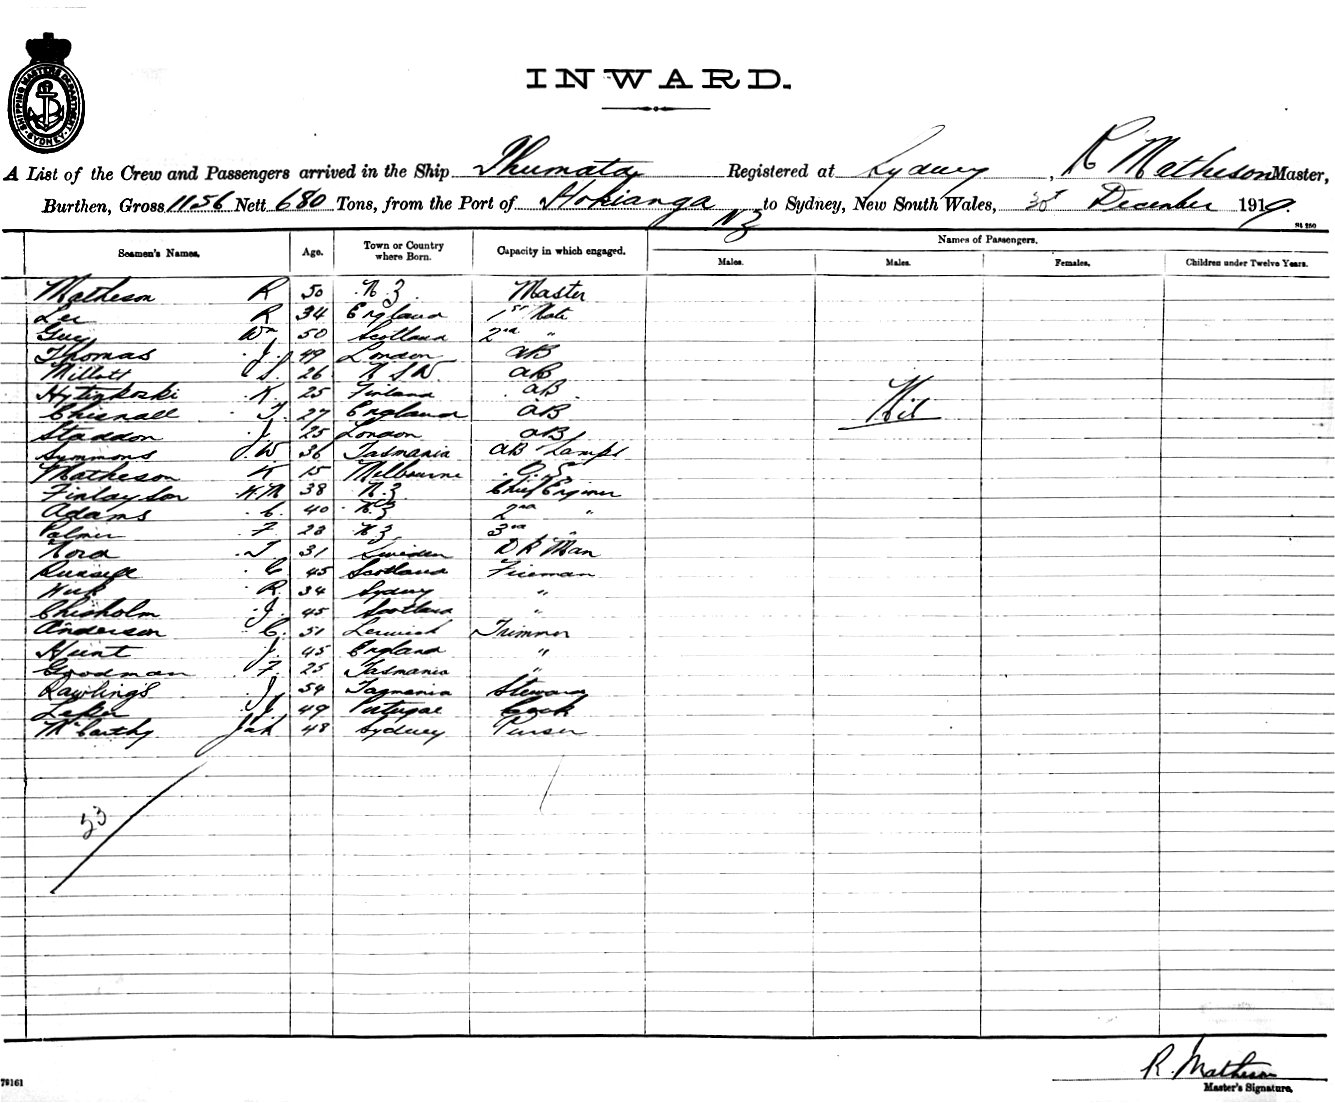 SHIPPING MASTERS DEPARTMENT SYDNEY
INWARD.
A List of the Crew and Passengers arrived in the Ship Registered at Sydney, R Matheson Master,
Burthen, Gross 1156 Nett 680 Tons, from the Port of Hokianga NZ to Sydney, New South Wales, December 1919.
Seamen's Names. Age. Town or Country where Born. Capacity in which engaged. Names of Passengers.
Males. Males. Females. Children under Twelve Years.
Matheson R 50 N.Z. Master
Lee R 34 England 1st Mate
Guy Wm 50 Scotland 2nd "
Thomas J. 49 London AB
Millott S. 26 N S W AB
K. 25 Finland AB
Chisnall T. 27 England AB
Nil
Staddon J. 25 London AB
Symmons J.W 36 Tasmania AB Lamps
Matheson K 15 Melbourne
Finlayson 38 N.Z Chief Engineer
Adams C. 40 N.Z 2nd "
Palmer F. 23 NZ 3rd "
T. 31 Sweden D K Man
Russell C 45 Scotland Fireman
R. 34 Sydney "
Chisholm J. 45 Scotland "
Anderson C. 51 Lerwick Trimmer
Hunt J. 45 England "
Goodman F. 25 Tasmania "
Rawlings J. 54 Tasmania Steward
J. 49 Portugal Cook
McCarthy 48 Sydney Purser
23
79161
R. Matheson
Master's Signature.